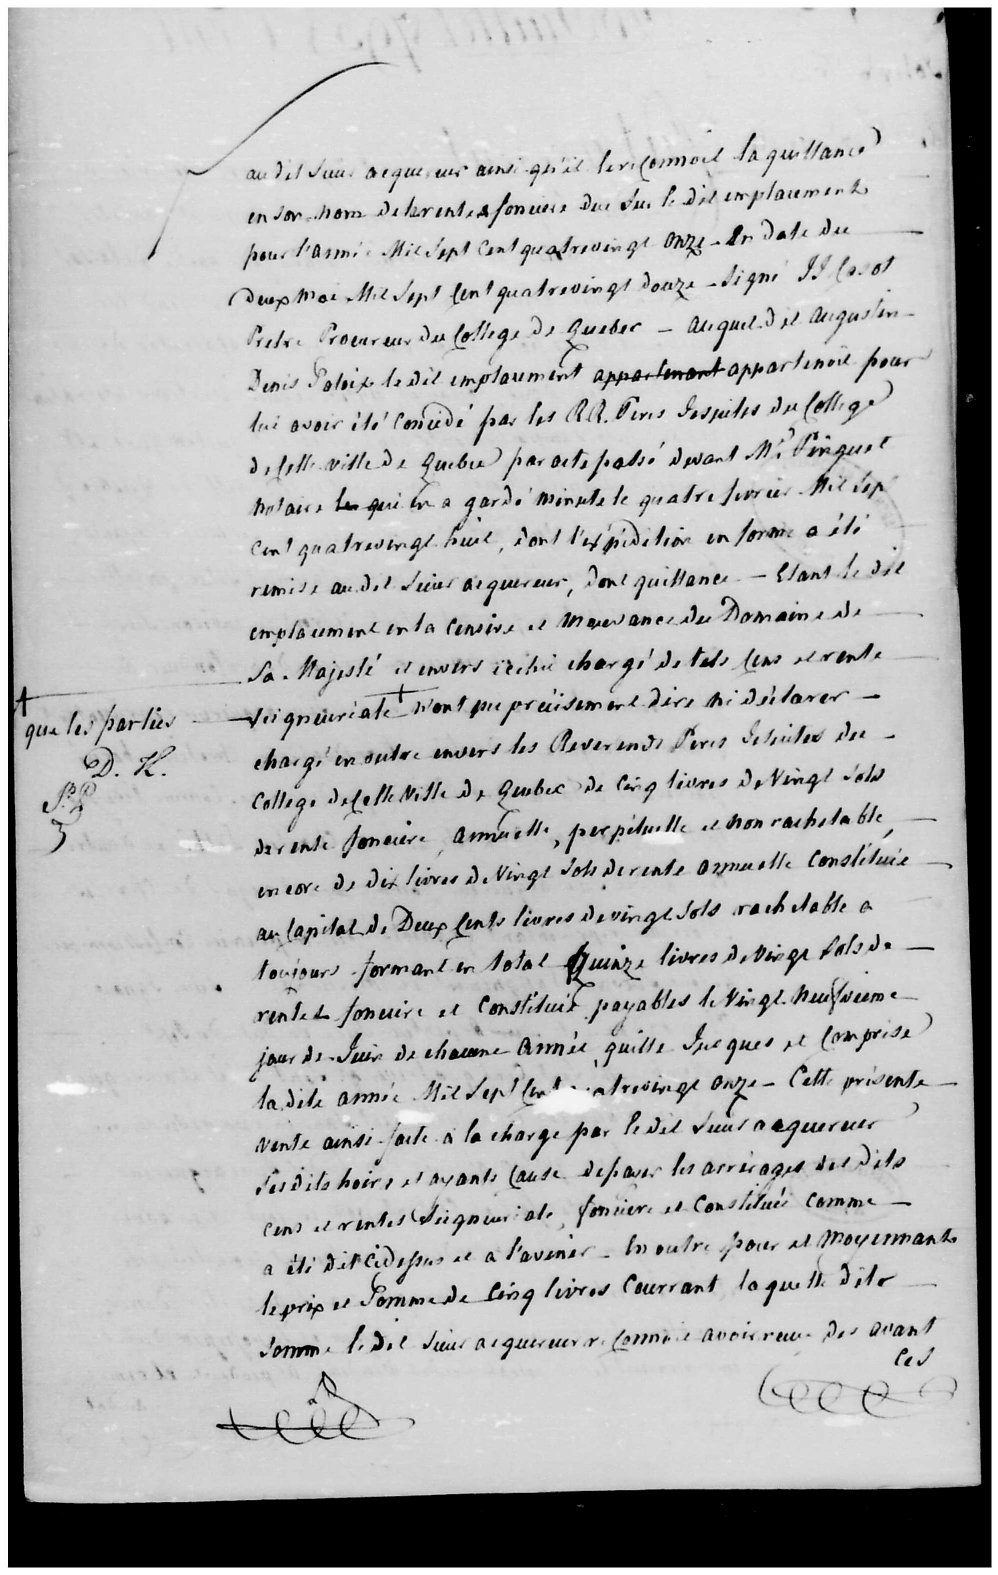 au dit Sieur acquereur ainsi qu'il le reconnoit la quittance
en son nom de la rente fonciere due sur le dit emplacement
pour l'année Mil Sept Cent quatrevingt onze - En date du
deux Mai Mil Sept Cent quatrevingt douze - Signé JJ Casot
Pretre Procureur du College de Quebec - auquel dit Augustin
Denis Paloix le dit emplacement appartenant appartenoit pour
lui avoir été Concédé par les R.R. Peres Jesuites du College
de Cette ville de Quebec par acte passé devant Mr. Pinguet
Notaire qui en a gardé minute le quatre fevrier Mil Sept
Cent quatrevingt huit, dont l'expédition en forme a été
remise au dit Sieur acquereur, dont quittance - Etant le dit
emplacement en la Censive et Mouvance du Domaine de
Sa Majesté et envers icelui chargé de tels Cens et rente
Seigneuriale + n'ont pu précisement dire ni déclarer -
+
que les parties
D. H.
chargé en outre envers les Reverends Peres Jesuites du -
College de Cette Ville de Quebec de Cinq livres de Vingt Sols
de rente fonciere, annuelle, perpétuelle et non rachetable,
encore de dix livres de Vingt Sols de rente annuelle Constituée
au Capital de Deux Cents livres de vingt Sols rachetable a
toujours formant en total Quinze livres de Vingt Sols de
rentes fonciere et Constituée payables le Vingt Neufvieme
jour de Juin de chacune Année quitte Jusques et Comprise
la dite année Mil Sept Cent quatrevingt onze - Cette présente
vente ainsi faite à la charge par le dit Sieur acquereur
Ses dits hoirs et ayants Cause de payer les arrérages des dits
cens et rentes Seigneuriale, fonciere et Constituée comme
a été dit Cidessus et a l'avenir - En outre pour et Moyennant
le prix et Somme de Cinq livres Courrant, laquelle dite
Somme le dit Sieur acquereur reconnoit avoir reçue des avant
Ces